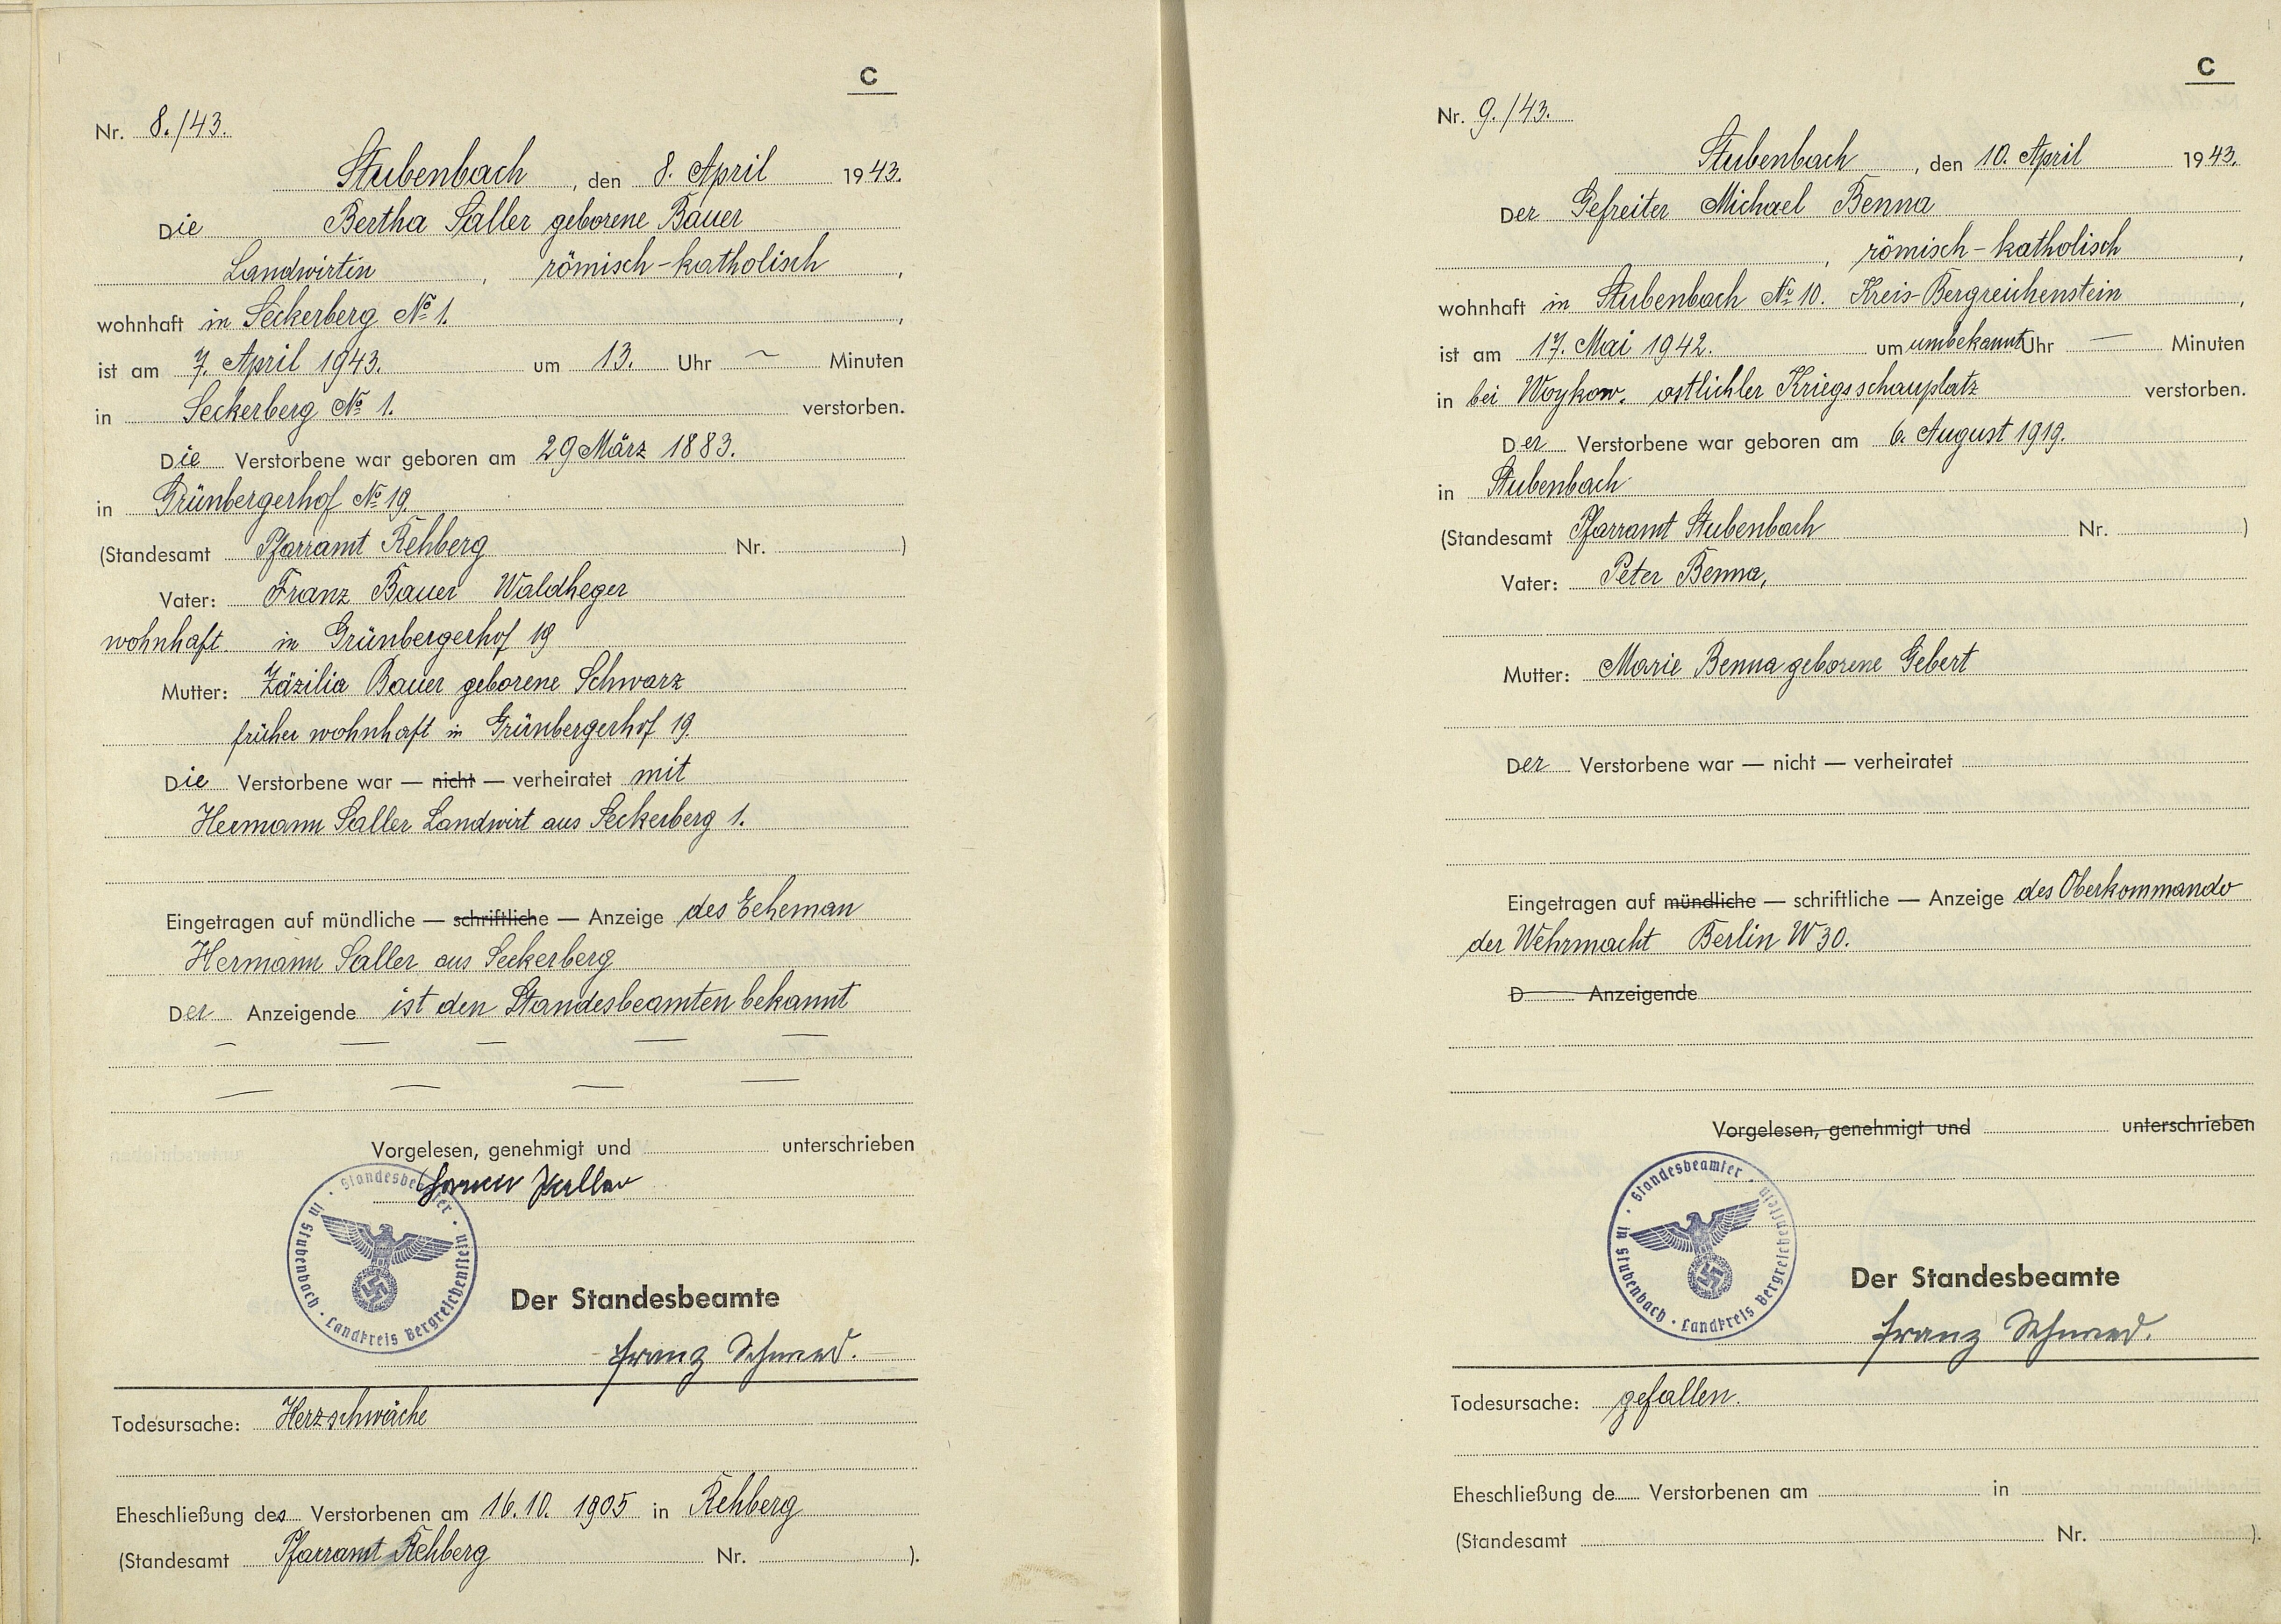 C
Nr. 8./43.
Stubenbach, den 8. April 1943.
Die Bertha Saller geborene Bauer
Landwirtin, römisch-katholisch,
wohnhaft in Seckerberg No 1.,
ist am 7. April 1943. um 13. Uhr — Minuten
in Seckerberg No 1. verstorben.
Die Verstorbene war geboren am 29 März 1883.
in Grünbergerhof No 19.
(Standesamt Pfarramt Rehberg Nr. )
Vater: Franz Bauer Waldheger
wohnhaft in Grünbergerhof 19
Mutter: Zäzilia Bauer geborene Schwarz
früher wohnhaft in Grünbergerhof 19.
Die Verstorbene war — nicht — verheiratet mit
Hermann Saller Landwirt aus Seckerberg 1.
Eingetragen auf mündliche — schriftliche — Anzeige des Eheman
Hermann Saller aus Seckerberg
Der Anzeigende ist den Standesbeamten bekannt
Vorgelesen, genehmigt und unterschrieben
Standesbeamter in Stubenbach · Landkreis Bergreichenstein
Der Standesbeamte
Franz Schmid.
Todesursache: Herzschwäche
Eheschließung des Verstorbenen am 16.10. 1905 in Rehberg
(Standesamt Pfarramt Rehberg Nr. ).
C
Nr. 9./43.
Stubenbach, den 10. April 1943.
Der Gefreiter Michael Benna
, römisch-katholisch,
wohnhaft in Stubenbach No 10. Kreis-Bergreichenstein,
ist am 17. Mai 1942. um umbekannt Uhr — Minuten
in bei Woykow. ostlichler Kriegsschauplatz verstorben.
Der Verstorbene war geboren am 6. August 1919.
in Stubenbach
(Standesamt Pfarramt Stubenbach Nr. )
Vater: Peter Benna,
Mutter: Marie Benna geborene Gebert
Der Verstorbene war — nicht — verheiratet
Eingetragen auf mündliche — schriftliche — Anzeige des Oberkommando
der Wehrmacht Berlin W 30.
D Anzeigende
Vorgelesen, genehmigt und unterschrieben
Standesbeamter · in Stubenbach · Landkreis Bergreichenstein
Der Standesbeamte
Franz Schmid.
Todesursache: gefallen.
Eheschließung de Verstorbenen am in
(Standesamt Nr. ).